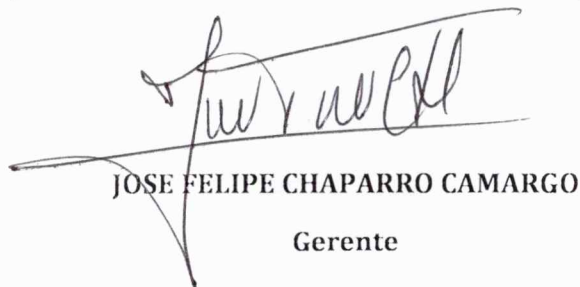 JOSE FELIPE CHAPARRO CAMARGO
Gerente